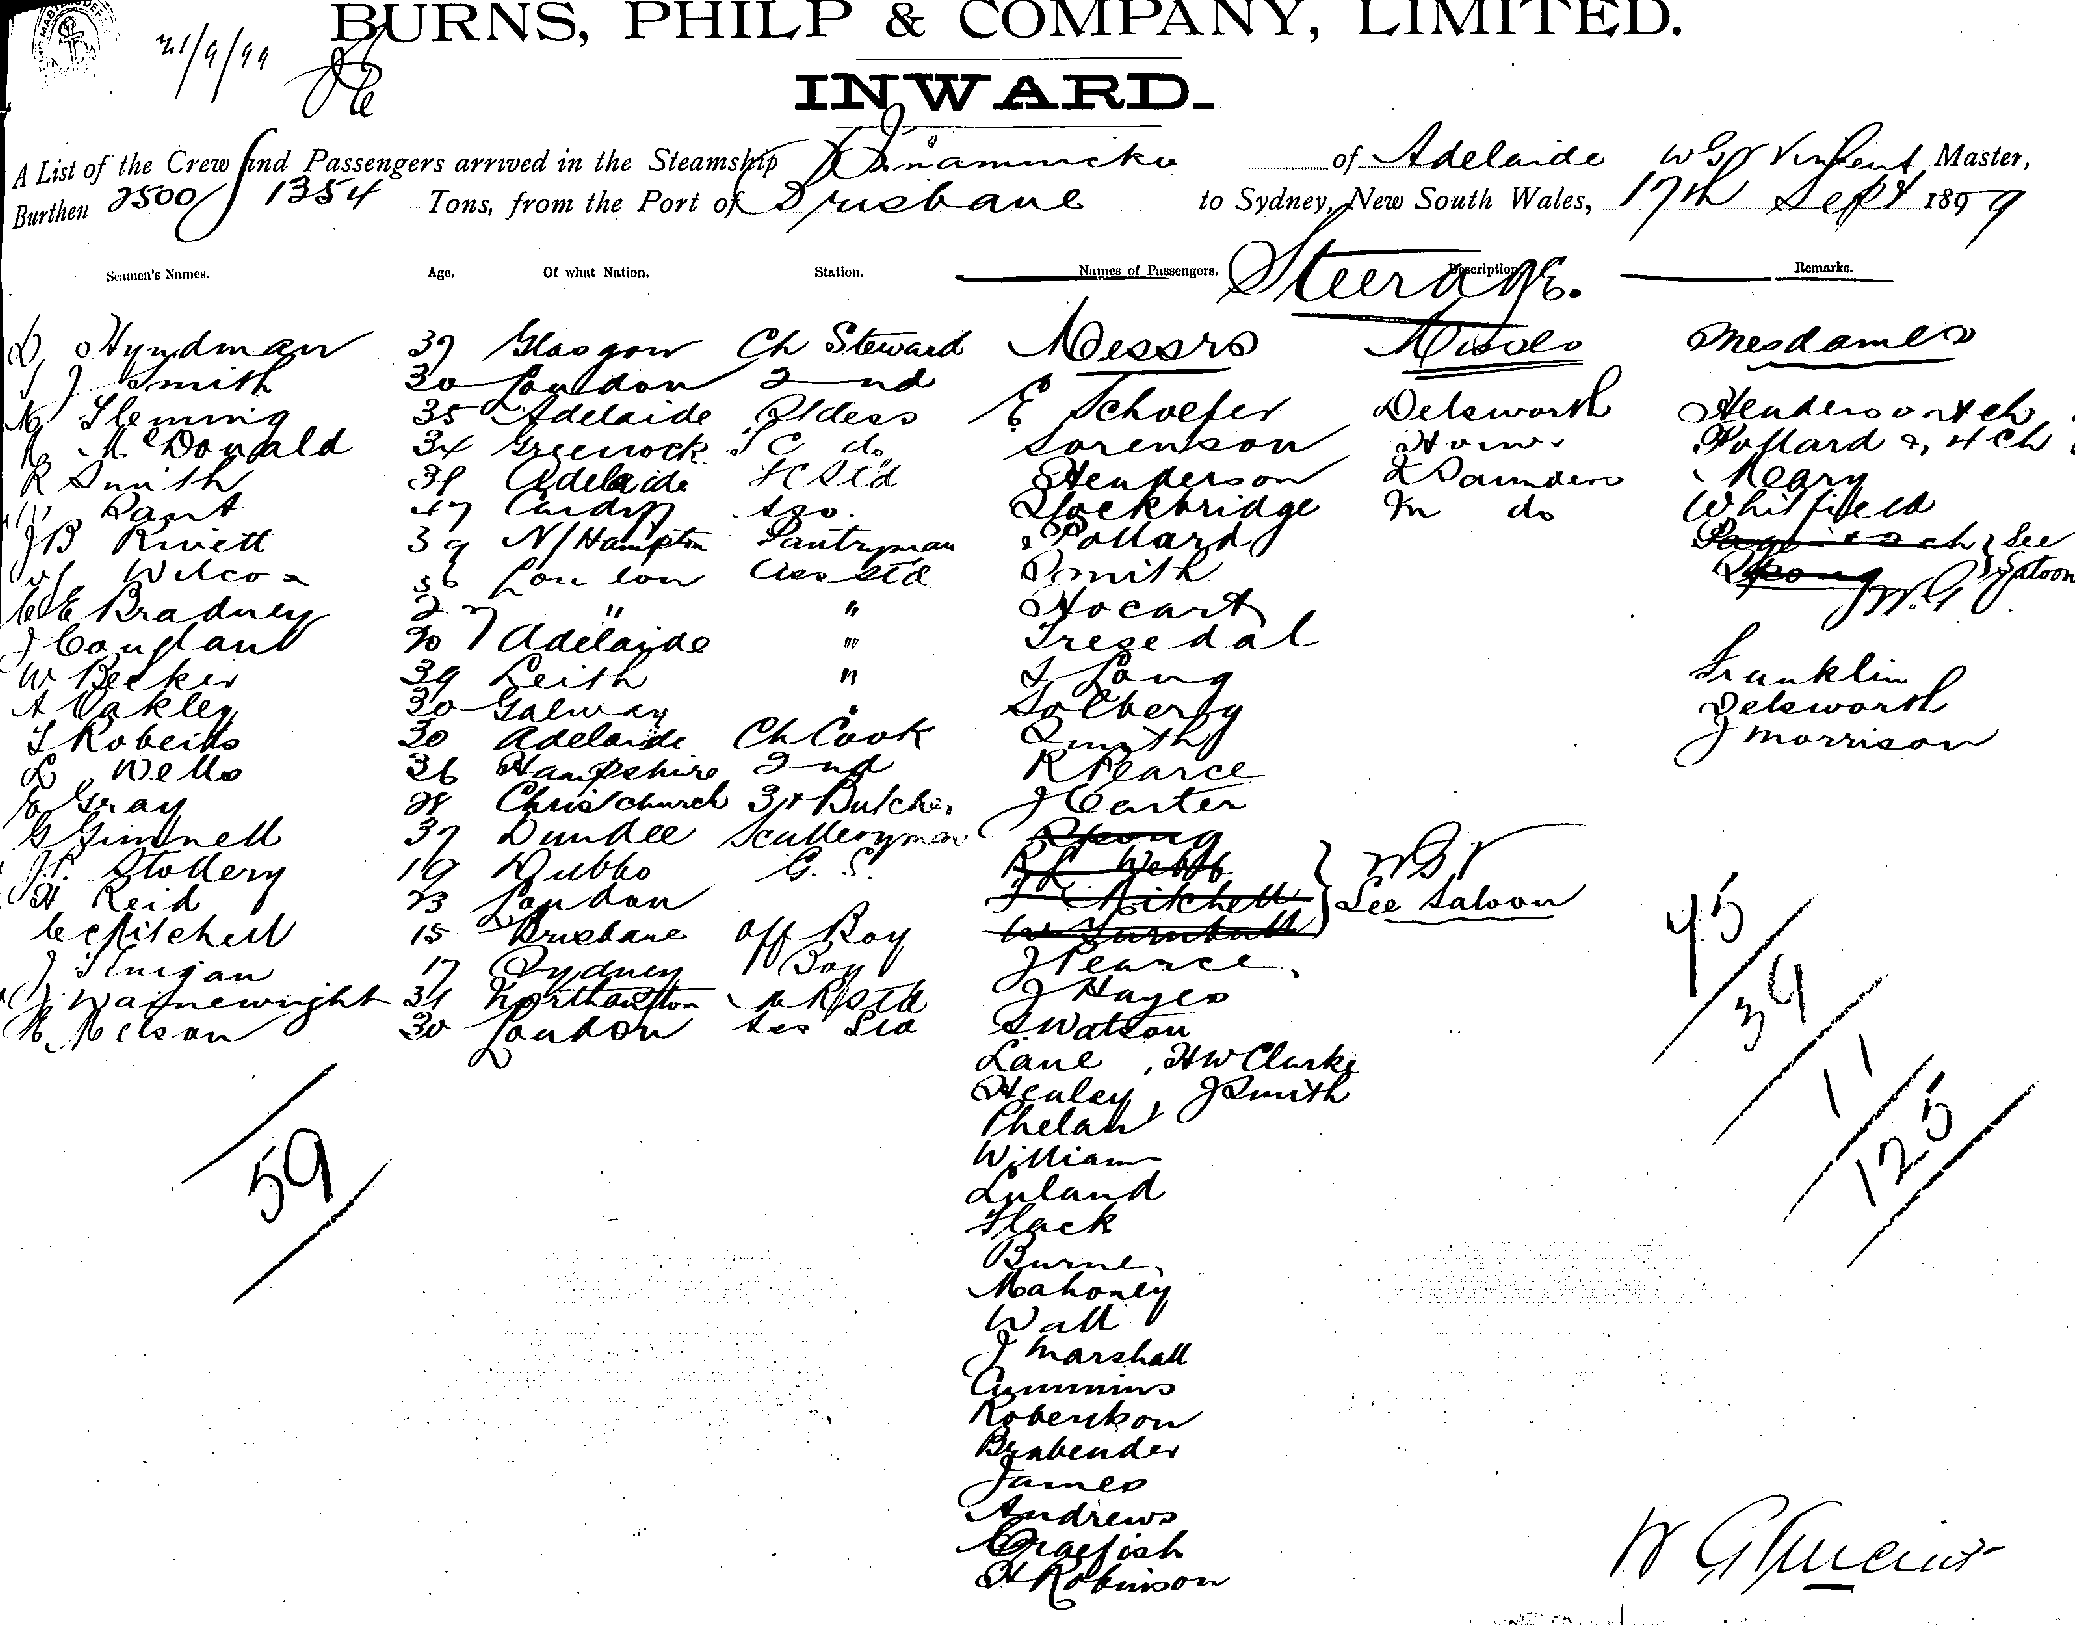 BURNS, PHILP & COMPANY, LIMITED.
21/9/99
INWARD.
A List of the Crew and Passengers arrived in the Steamship Innamincka of Adelaide W G Vincent Master,
Burthen 2500/1354 Tons, from the Port of Brisbane to Sydney, New South Wales, 17th Sept 1899
Seamen's Names. Age. Of what Nation. Station. Names of Passengers. Description. Remarks.
Steerage.
D Hyndman 37 Glasgow Ch Steward Messrs Misses Mesdames
J Smith 30 London 2nd
Fleming 35 Adelaide Stdess E Schoefer Delsworth Henderson & ch
McDonald 34 Greenock S C do Sorenson Pollard & 4 ch
R Smith 38 Adelaide Std Henderson Saunders Keary
Pant 47 Cardiff Stockbridge M do Whitfield
J B Rivett 39 N/Hampton Pantryman Pollard See
Wilcox 36 London Ass Std Smith Spong Saloon
E Bradney 27 " " Hocart
J Coughlan 20 Adelaide " Tresedal
W Becker 39 Leith " Long Franklin
A Oakley 30 Galway " Solberg Delsworth
T Roberts 30 Adelaide Ch Cook Smith J Morrison
L Wells 36 Hampshire 2nd R Pearce
Gray 28 Christchurch 3rd Butcher J Carter
G Gimmell 37 Dundee Scullerymen Spong
J P Stollery 19 Dubbo G. S. R L Webb W G V
H Reid 23 London Mitchell See Saloon
C Mitchell 15 Brisbane Off Boy W Turnbull
J Finigan 17 Sydney Boy J Pearce
Wainewright 31 Northampton Std J Hayes
Nelson 30 London S Watson
Lane, H W Clarke
Healey, J Smith
Phelan
Williams
Lyland
Flack
Burne
Mahoney
Wall
J Marshall
Cummins
Robertson
Brabender
James
Andrews
Craefish
H Robinson
59
45
34
11
125
W G Vincent